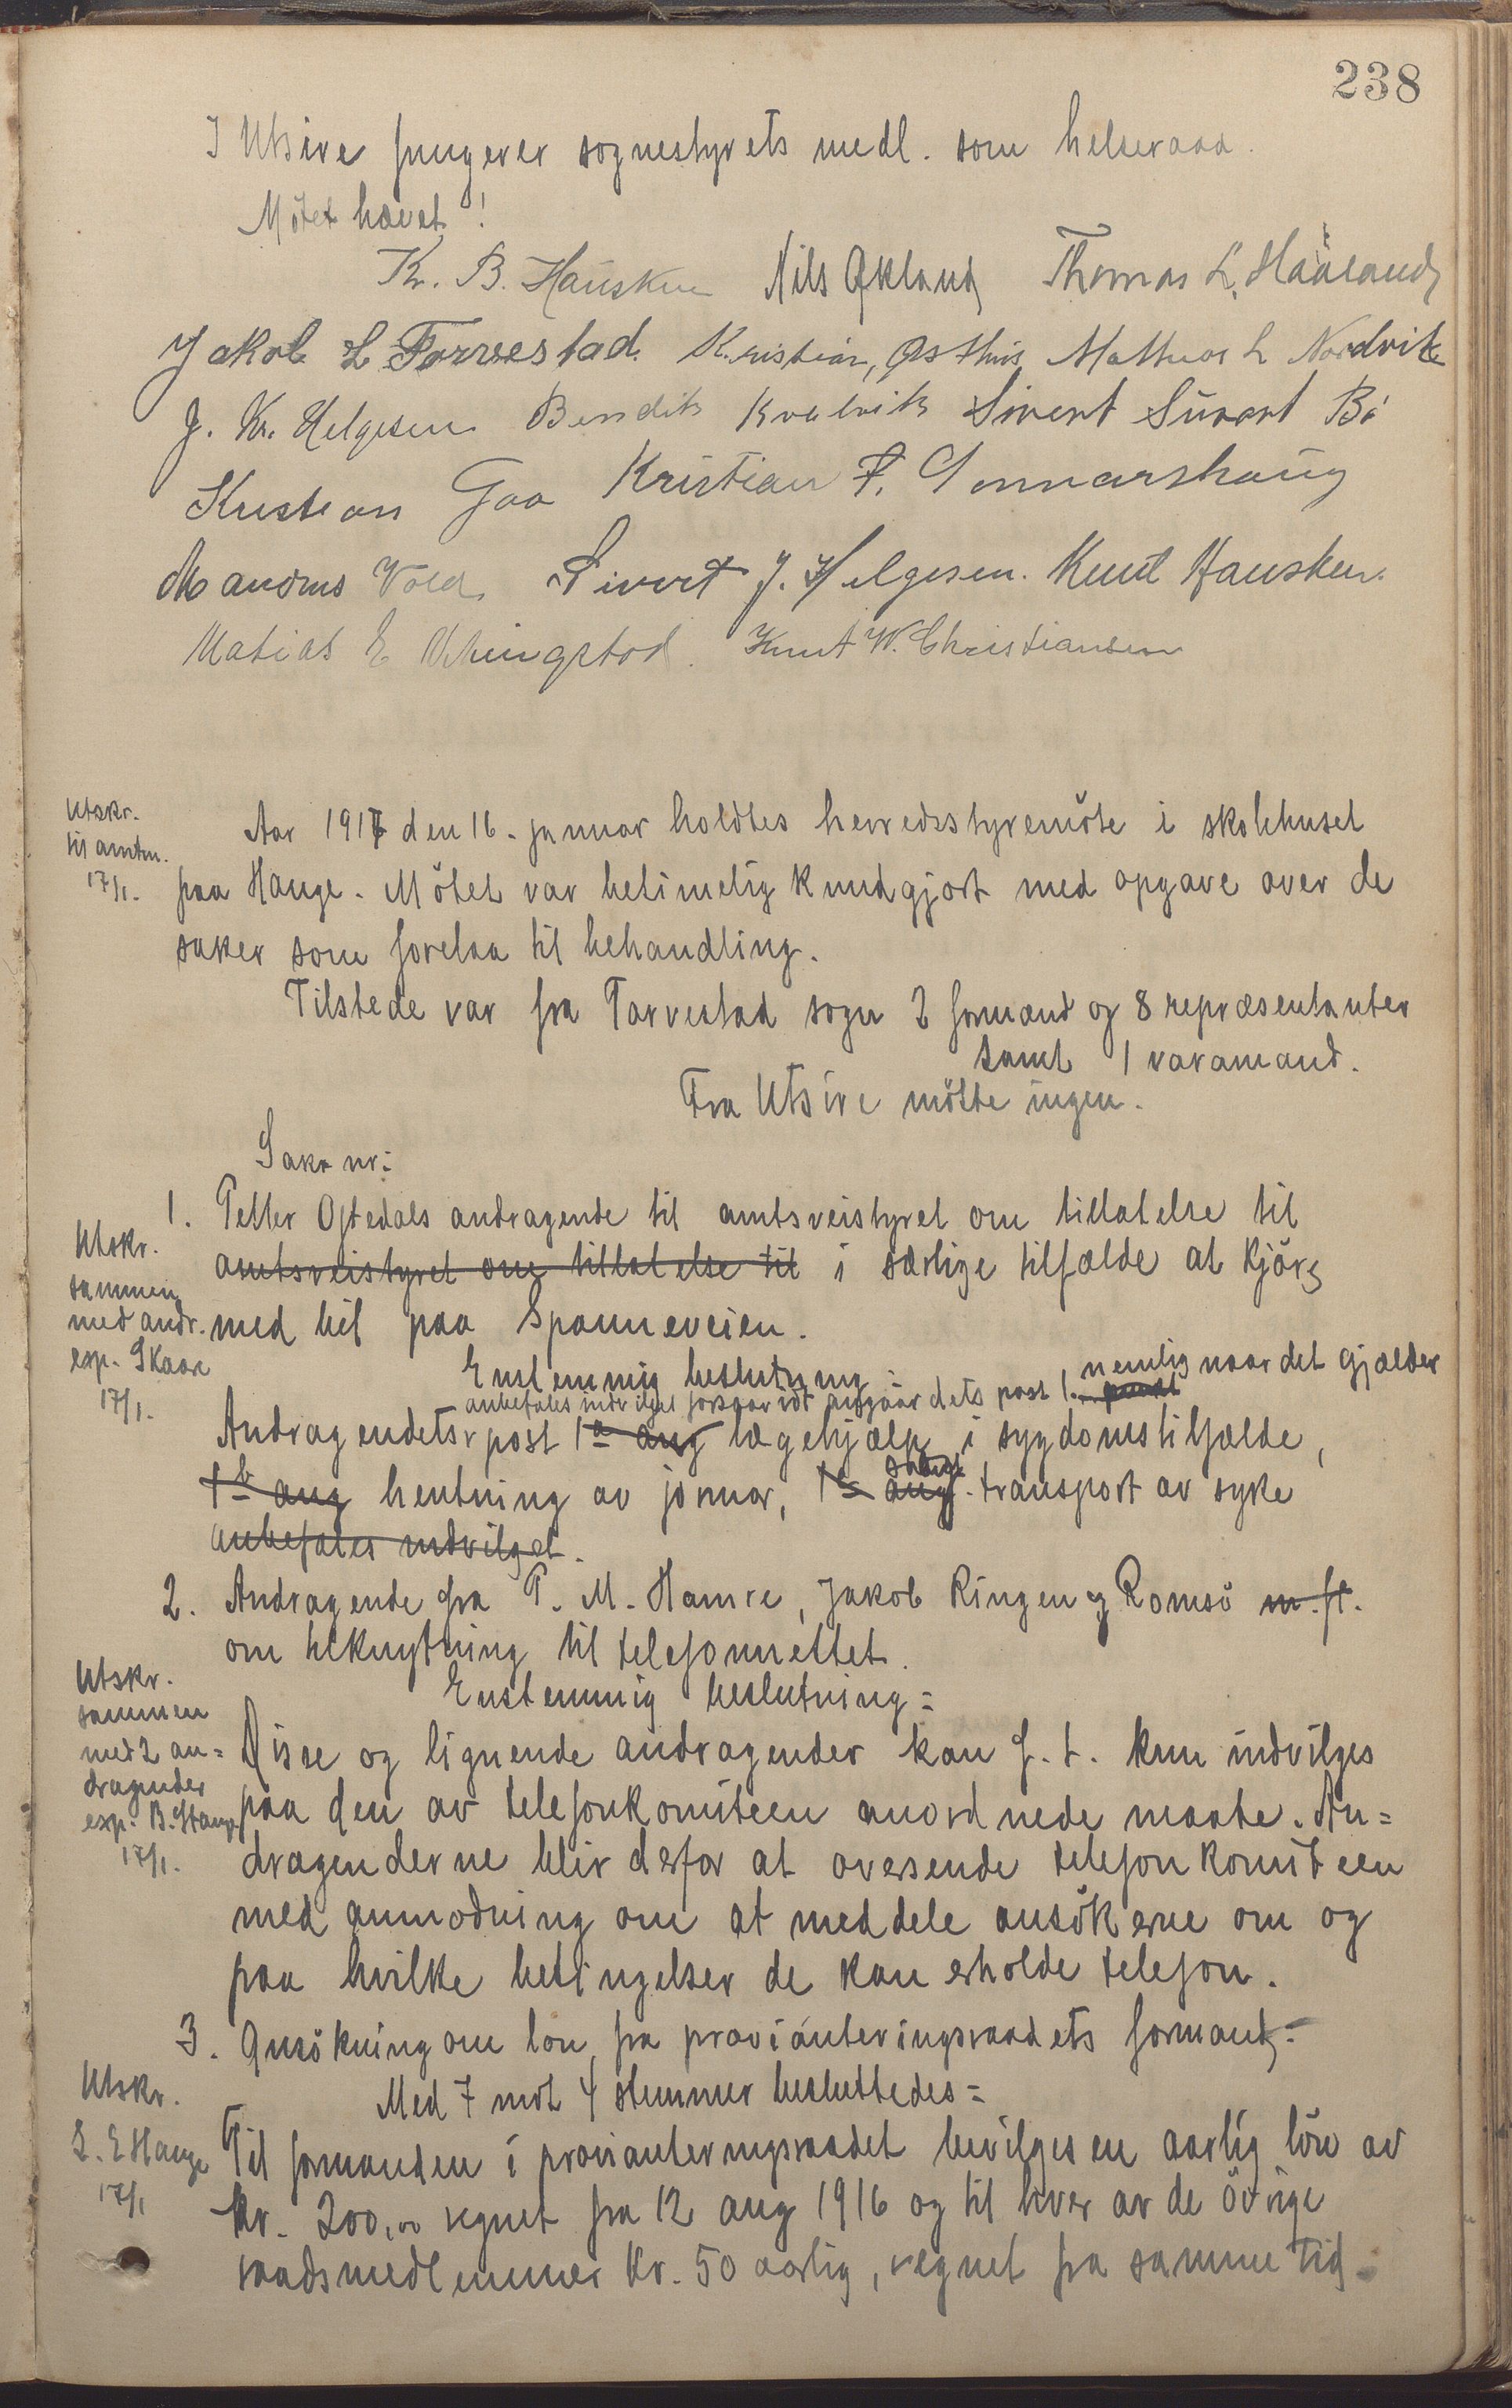 238
I Utsire fungerer sognestyrets medl. som helseraad.
Mötet hævet!
Kr. B. Hausken Nils Økland Thomas L. Haaland
Jakob L Torvestad. Kristian, Østhus Mathias L Nordvik
J. Kr. Helgesen Bendik Kvalvik Sivert Sivert Bö
Kristian Gaa Kristian F. Gunnarshaug
Mandrus Vold. Sivert J. Helgesen. Knut Hausken.
Matias E Velingstad. Knut W. Christiansen
Utskr.
til amtm.
17/1.
Aar 1917 den 16. januar holdtes herredsstyremöte i skolehuset
paa Hauge. Mötet var betimelig kundgjort med opgave over de
saker som forelaa til behandling.
Tilstede var fra Torvestad sogn 2 formænd og 8 repræsentanter
samt 1 varamand.
Fra Utsire mötte ingen.
Sak nr:
Utskr.
sammen
med andr.
exp. Skaar
17/1.
1. Petter Oftedals andragende til amtsveistyret om tillatelse til
amtsveistyret om tillatelse til i særlige tilfælde at kjöre
med bil paa Spanneveien.
Enstemmig beslutning:
anbefales indvilget forsaavidt angaar dets post 1. punkt nemlig naar det gjælder
Andragendets post 1a ang lægehjælp i sygdomstilfælde,
1b ang hentning av jormor, 1c ang. samt transport av syke
anbefales indvilget.
2. Andragende fra P. M. Hamre, Jakob Ringen og Romsö m. fl.
om tilknytning til telefonnettet.
Utskr.
sammen
med 2 an=
dragender
exp. B. Hauge
17/1.
Enstemmig beslutning:
Disse og lignende andragender kan f. t. kun indvilges
paa den av telefonkomiteen anordnede maate. An=
dragenderne blir derfor at oversende telefonkomiteen
med anmodning om at meddele ansökerne om og
paa hvilke betingelser de kan erholde telefon.
3. Ansökning om lön fra provianteringsraadets formand:
Utskr.
S. E Hauge
17/1
Med 7 mot 4 stemmer besluttedes:
Til formanden i provianteringsraadet bevilges en aarlig lön av
kr. 200,00 regnet fra 12 aug 1916 og til hver av de övrige
raadsmedlemmer kr. 50 aarlig, regnet fra samme tid.